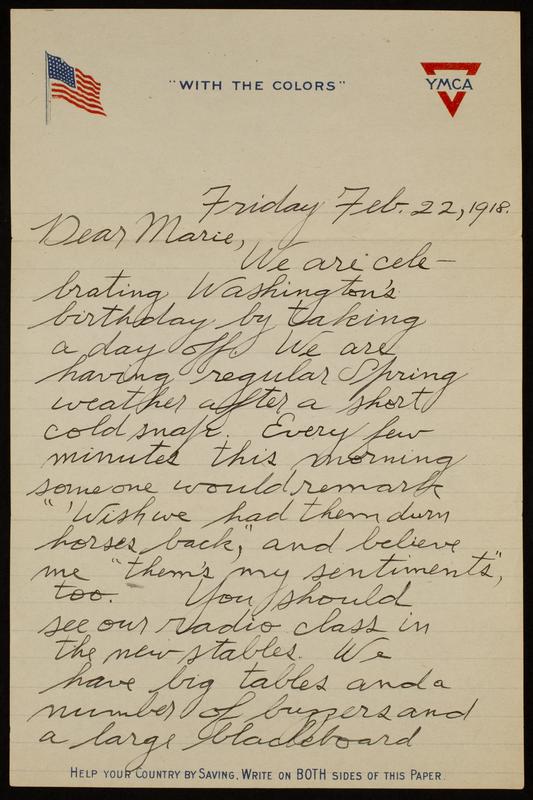 "WITH THE COLORS"
YMCA
Friday Feb. 22, 1918.
Dear Marie,
We are cele-
brating Washington's
birthday by taking
a day off. We are
having regular Spring
weather after a short
cold snap. Every few
minutes this morning
someone would remark
"'Wish we had them durn
horses back," and believe
me "them's my sentiments",
too. You should
see our radio class in
the new stables. We
have big tables and a
number of buzzers and
a large blackboard
HELP YOUR COUNTRY BY SAVING. WRITE ON BOTH SIDES OF THIS PAPER.